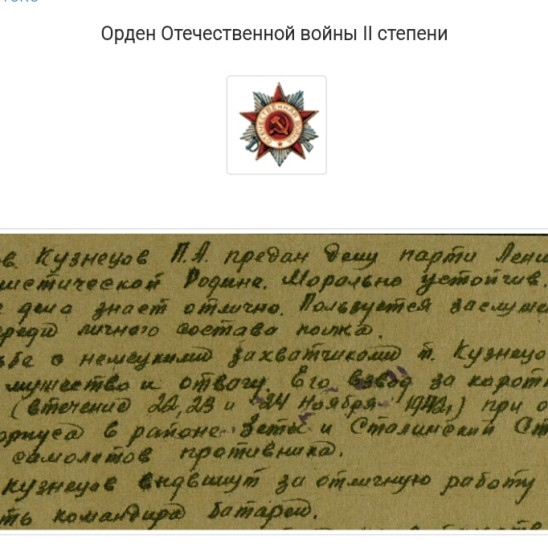 Орден Отечественной войны II степени
ов Кузнецов П.А. предан делу парти Лени
листической Родине. Морально устойчив.
дела знает отлично. Пользуется заслуже
среди личного состава полка.
ьбе с немецкими захватчиками т. Кузнецо
мужество и отвагу. Его взвод за коротк
(втечение 22, 23 и 24 ноября 1942г) при о
корпуса в районе Зеты и Сталинский Ст
самолетов противника.
Кузнецов выдвинут за отличную работу
ть командира батареи.